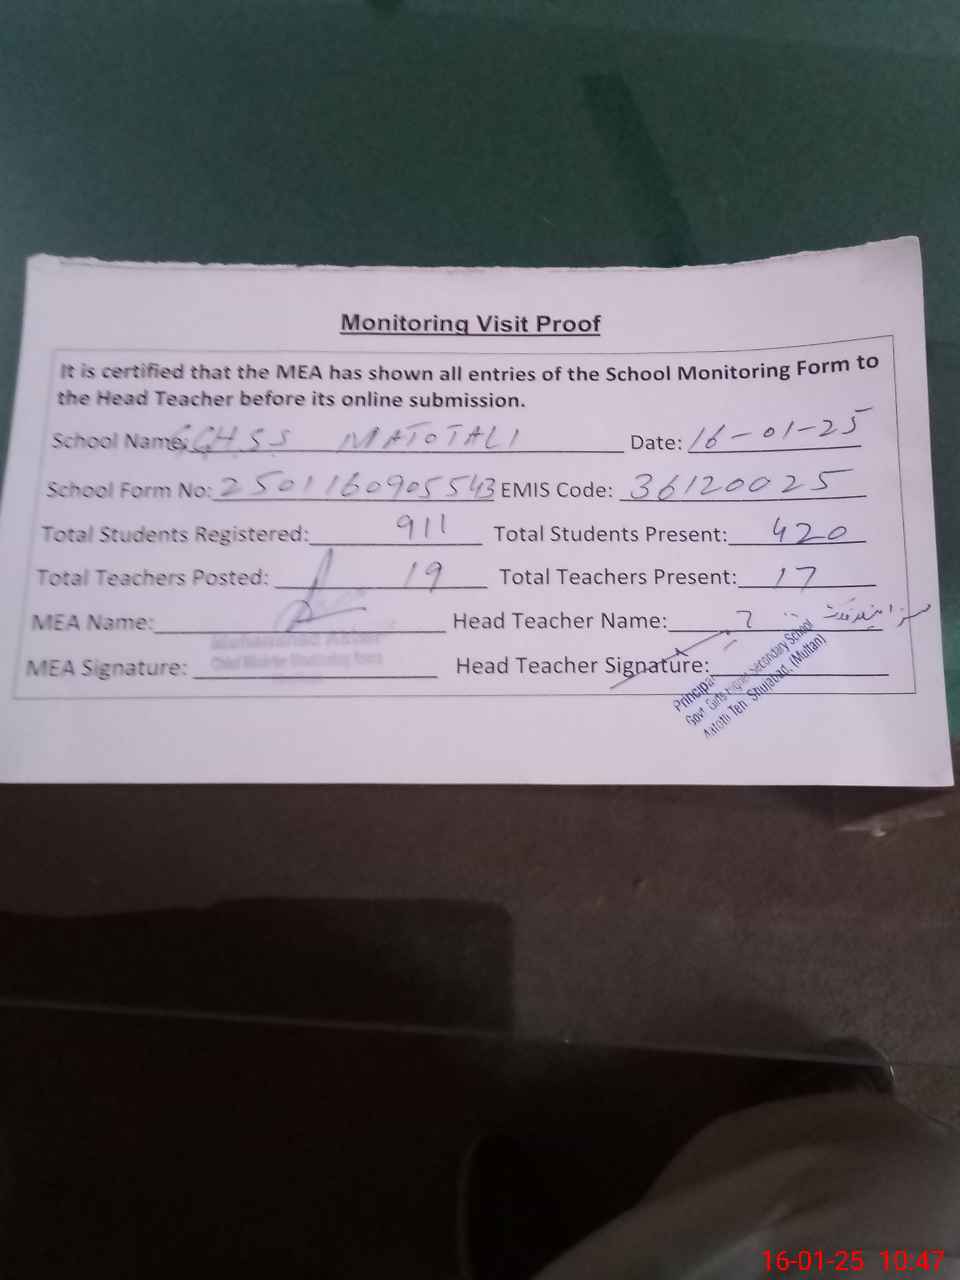 Monitoring Visit Proof
It is certified that the MEA has shown all entries of the School Monitoring Form to
the Head Teacher before its online submission.
School Name: GGHSS MATOTALI Date: 16-01-25
School Form No: 2501160905543 EMIS Code: 36120025
Total Students Registered: 911 Total Students Present: 420
Total Teachers Posted: 19 Total Teachers Present: 17
MEA Name: Head Teacher Name:
Muhammad Akhtar
MEA Signature: Head Teacher Signature:
Principal
Govt. Girls Higher Secondary School
Teh. Shujabad, (Multan)
16-01-25 10:47